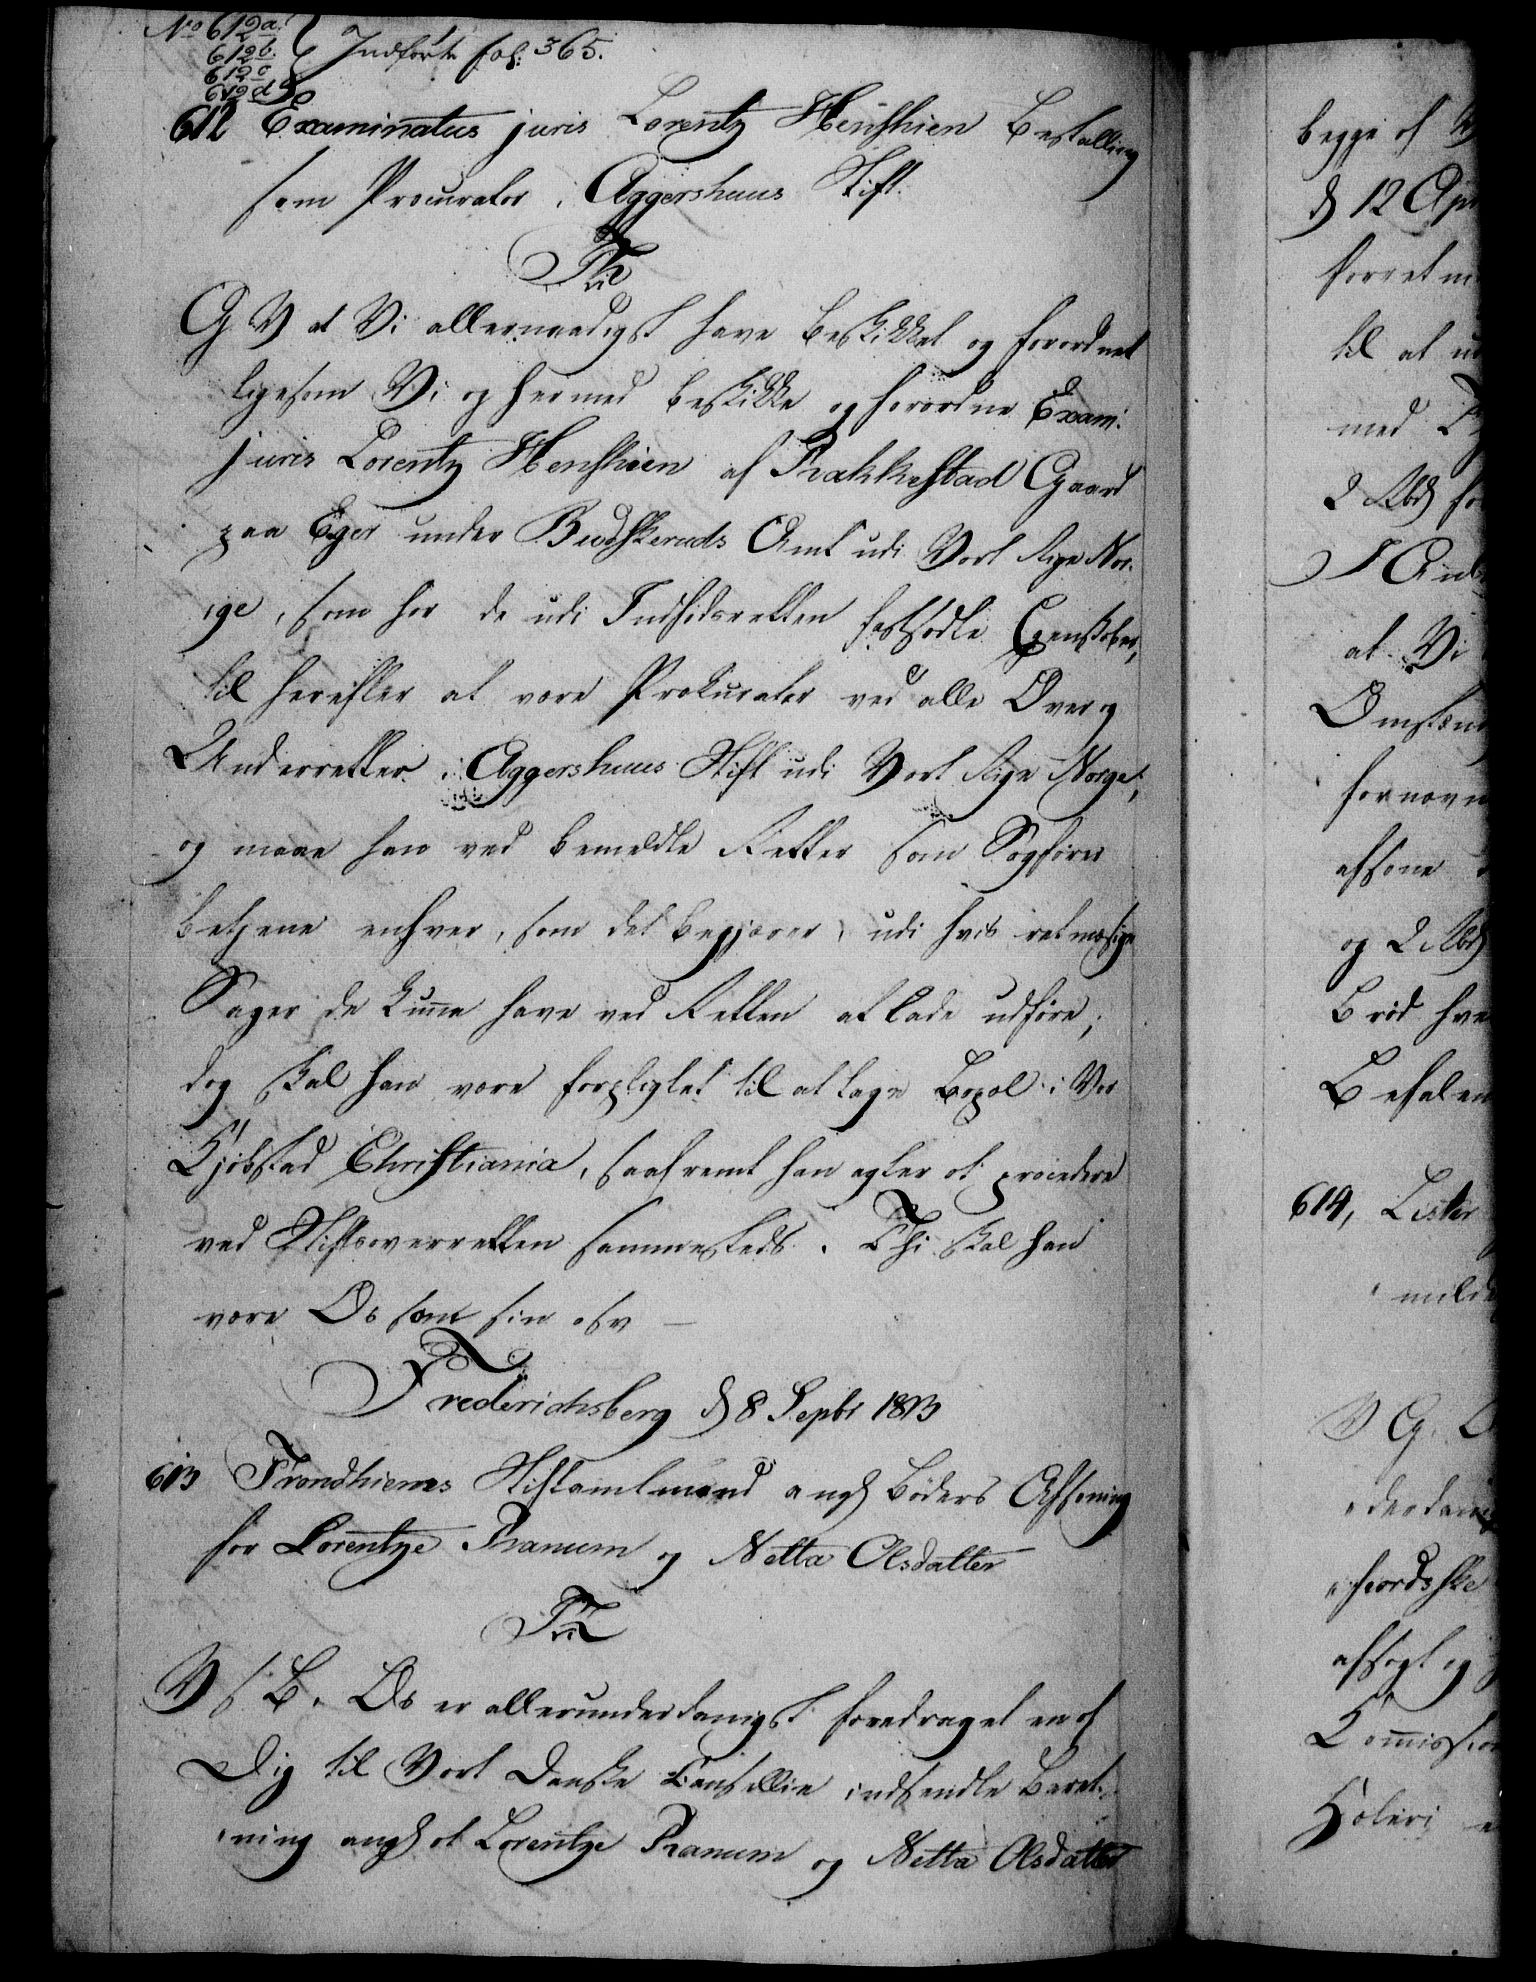 No 612a.
612b. Indført fol: 365.
612c
612d
612 Examinatus juris Lorentz Henschien Bestalling
som Procurator i Aggershuus Stift.
G V at Vi allernaadigst have beskikket og forordnet
ligesom Vi og hermed beskikke og forordne Exam:
juris Lorentz Henschien af Rakkestad Gaard
paa Eger under Budskeruds Amt udi Vort Rige Nor-
ige, som har de udi Indfødsretten fastsatte Egenskaber,
til herefter at være Prokurator ved alle Over og
Underretter i Aggershuus Stift udi Vort Rige Norge;
og maae han ved bemeldte Retter som Sagfører
betjene enhver, som det begjærer, udi hvis retmæsige
Sager de kunne have ved Retten at lade udføre;
dog skal han være forpligtet til at tage Bopæl i Vor
Kjøbstad Christiania, saafremt han agter at procedere
ved Stiftsoverretten sammesteds. Thi skal han
være Os som sin osv
Frederichsberg d 8 Septbr 1813
613 Trondhiems Stiftamtmand angd Bøders Afsoning
for Lorentze Ranum og Netta Olsdatter
V s B. Os er allerunderdanigst foredraget en af
Dig til Vort Danske Cancellie indsendte Beret-
ning angd at Lorentze Ranum og Netta Olsdatter
begge af
d 12 Apr
til at
med
2 Rbd for
at Vi
Omstæn
fornævn
afsone
og 2 Rbd
Brød hve
Befalen
614, Lister
afsagt og
Commission